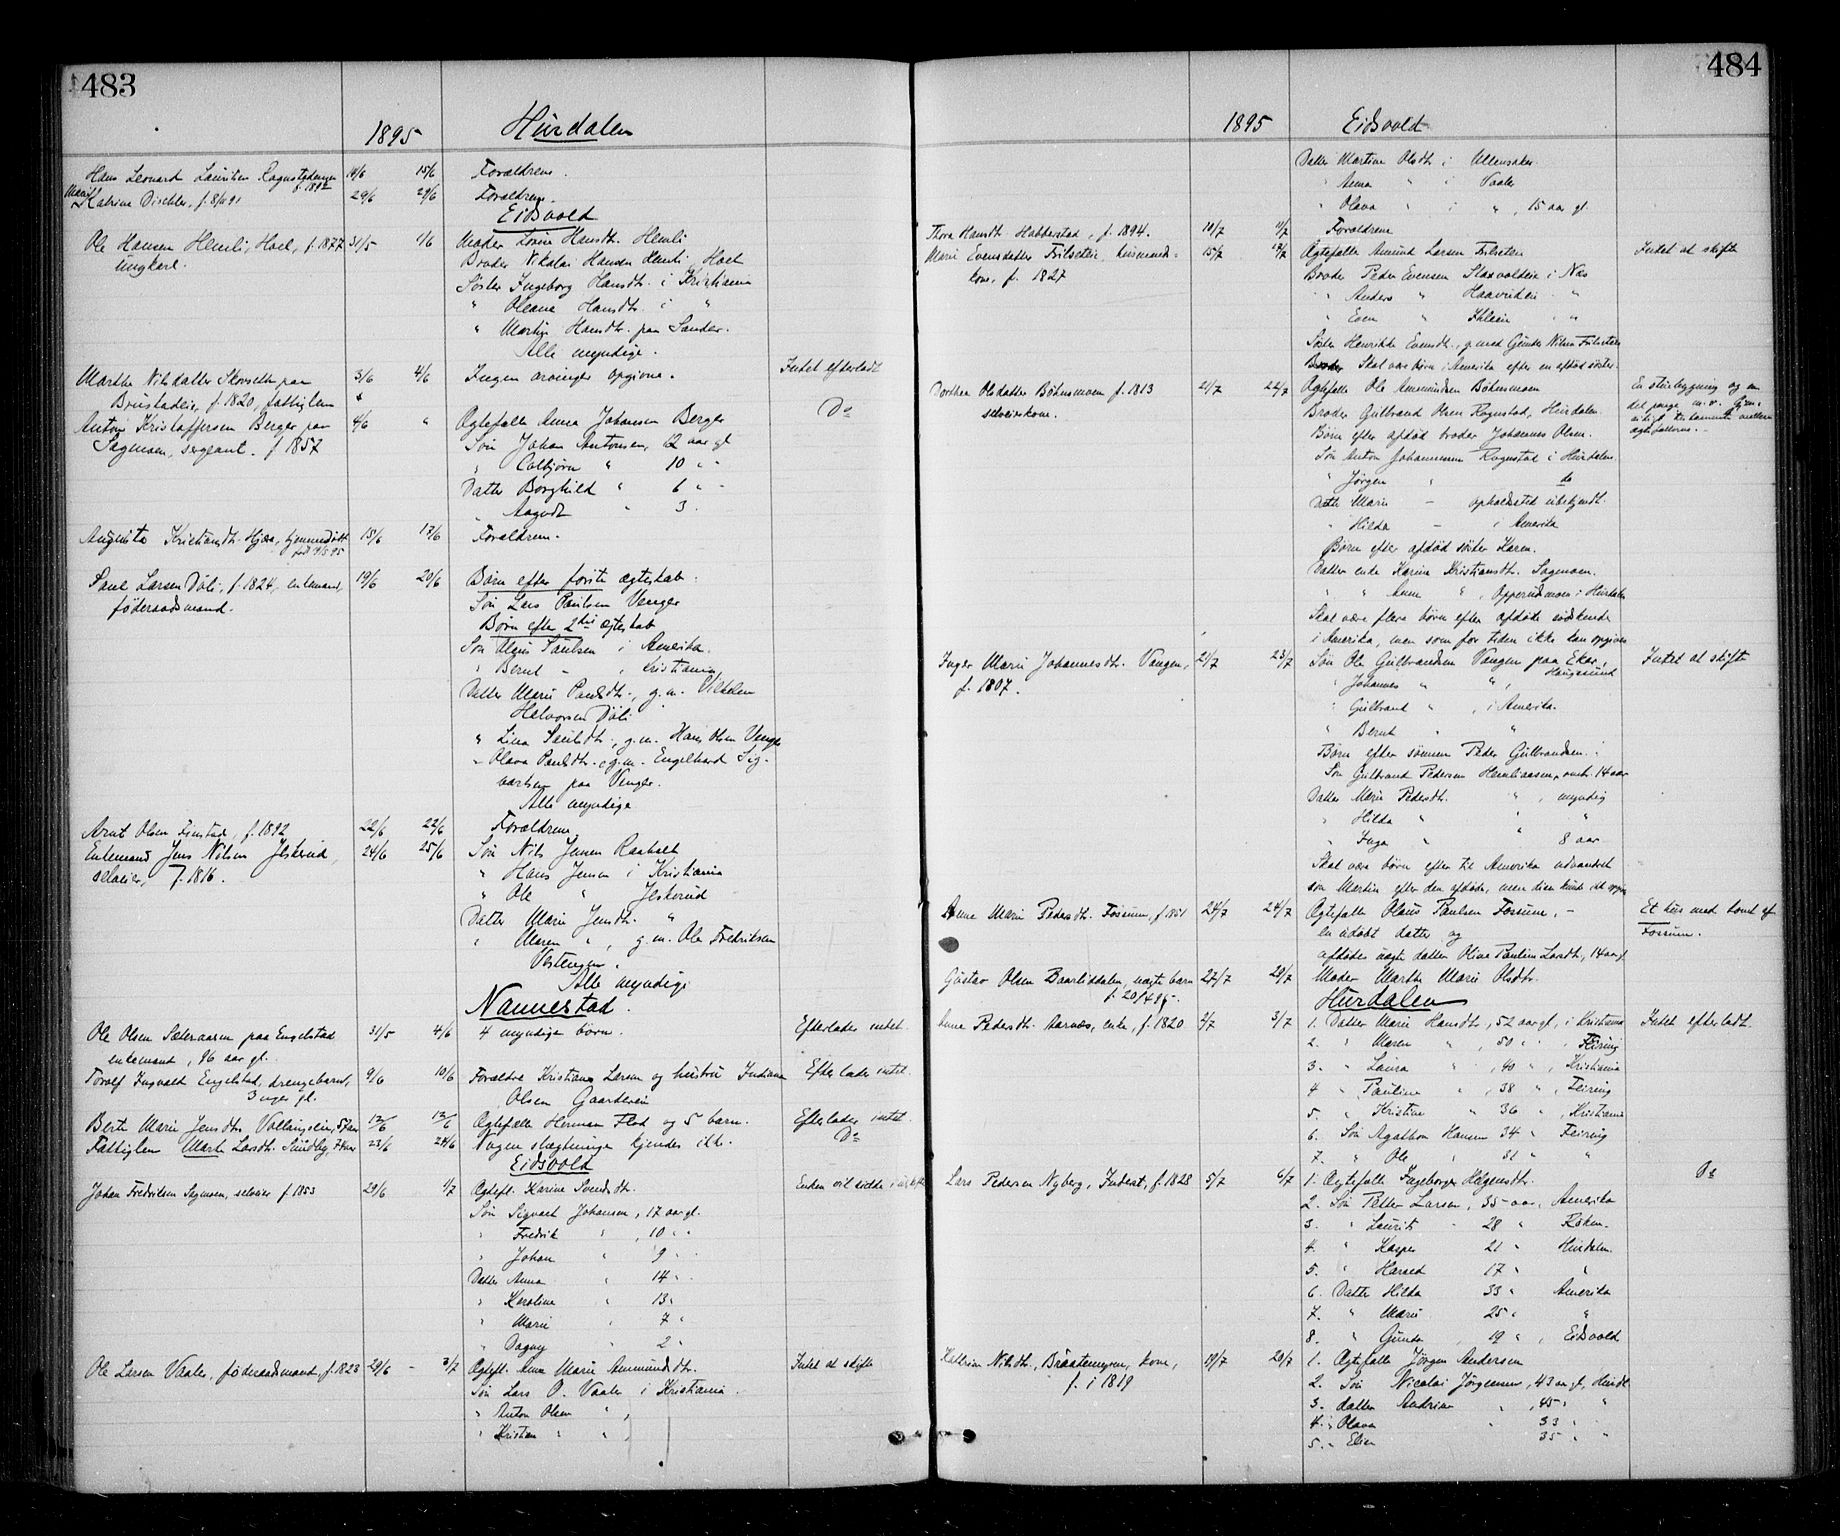 483
1895 Hurdalen
Hans Leonard Lauritsen Rognstad f. 1892 14/6 15/6 Forældrene.
Marie Katrine Dischler, f. 8/11 91 29/6 29/6 Forældrene.
Eidsvold
Ole Hansen Hemli, Hoel, f. 1877 31/5 1/6 Moder Lovise Hansdt. Hemli
ungkarl. Broder Nikolai Hansen Hemli, Hoel
Søster Ingeborg Hansdt. i Kristiania
" Oleana Hansdt. i "
" Martine Hansdt. paa Sander.
Alle myndige.
Marthe Nilsdatter Skorseth paa 3/6 4/6 Ingen arvinger opgivne. Intet efterladt
Brustadeie, f. 1820, fattiglem
Anton Kristoffersen Berger paa 4/6 " Ægtefælle Anna Johansen Berger Do
Sagmoen, sergeant. f 1857 Søn Johan Antonsen, 12 aar gl
" Colbjørn " 10 " -
Datter Borghild " 6 " -
" Aagodt " 3
Augusta Kristiansdt. Hjæra, hjemmedøbt 15/6 17/6 Forældrene.
Paul Larsen Døli, f. 1824, enkemand, 19/6 20/6 Børn efter første ægteskab.
føderaadsmand. Søn Lars Paulsen Venger
Børn efter 2det ægteskab
Søn Olaus Paulsen i Amerika.
" Bernt - " Kristiania
Datter Marie Paulsdt., g. m. Vilhelm
Halvorsen Døli
" Lina Paulsdt., g. m. Hans Olsen Venger
" Olava Paulsdt. g. m. Engelhard Sig-
vartsen paa Venger.
Alle myndige
Arnt Olsen Finstad, f. 1892 22/6 22/6 Forældrene
Enkemand Jens Nilsen Jlskerud, 24/6 25/6 Søn Nils Jensen Raaholt
selveier, f. 1816. " Hans Jensen i Kristiania
" Ole " Jlskerud
Datter Marie Jensdt. "
" Maren ", g. m. Ole Fredriksen
Vestengen.
Alle myndige
Nannestad.
Ole Olsen Sæteraasen paa Engelstad 31/5 4/6 4 myndige børn. Efterlader intet.
enkemand, 86 aar gl.
Torolf Ingvald Engelstad, drengebarn, 9/6 10/6 Forældre Kristian Larsen og hustru Indiana Efterlader intet.
3 uger gl. Olsen Gaardereie
Berte Marie Jensdtr. Vollengseie, 57 aar 12/6 12/6 Ægtefælle Herman Flod og 5 børn. Efterlader intet.
Fattiglem Marte Larsdt. Sundby, 23/6 24/6 Nogen slægtninge kjendes ikke. Do
Eidsvold
Johan Fredriksen Sagmoen, selveier f. 1853 29/6 1/7 Ægtef. Karine Svendsdt. Enken vil sidde i uskifte
Søn Sigvart Johansen, 17 aar gl.
" Fredrik " , 10 " "
" Johan " 9 " "
Datter Anna " 14 "
" Karoline " 13 "
" Marie " 7 "
" Dagny " 2 "
Ole Larsen Vaaler, føderaadsmand, f. 1823 29/6 - 3/7 Ægtef. Anne Marie Amundsdt. Intet at skifte
Søn Lars O. Vaaler i Kristiania.
" Anton Olsen " ,
" Kristian " " ,
484
1895 Eidsvold
Datter Martine Olsdt. i Ullensaker.
" Anna " i Vaaler
" Olava " i " , 15 aar gl.
Thora Hansdt Habberstad, f. 1894. 10/7 11/7 Forældrene
Marie Evensdatter Frilseteie, husmands- 15/7 17/7 Ægtefælle Amund Larsen Frilseteie Intet at skifte
kone, f. 1827 Broder Peder Evensen Slaavoldeie i Næs
" Anders " Haavrideie "
" Even " Ihleeie " "
Søster Henrikke Evensdt., g. med Gunder Nilsen Frilseteie
Skal være børn i Amerika efter en afdød søster.
Dorthea Olsdatter Bøhnsmoen f. 1813 21/7 22/7 Ægtefælle Ole Amundsen Bøhnsmoen En stuebygning og en
selveierkone. Broder Gulbrand Olsen Rognstad, Hurdalen. del penge m. v. Gjen-
Børn efter afdød broder Johannes Olsen. sidigt testamente mellem
Søn Anton Johannesen Rognstad i Hurdalen. ægtefællerne.-
" Jørgen " do
Datter Marie - opholdssted ubekjendt.
" Hilda - i Amerika
Børn efter afdød søster Karen.
Datter enke Karine Kristiansdt. Sagmoen.
" " Anne " , Opperudmoen i Hurdalen
Skal være flere børn efter afdøde sødskende
i Amerika, men som for tiden ikke kan opgives
Inger Marie Johannesdt. Vangen, 21/7 23/7 Søn Ole Gulbrandsen Vangen paa Eker. Intet at skifte
f. 1807. " Johannes " " , Haugesund
" Gulbrand " , i Amerika.
" Bernt " "
Børn efter sønnen Peder Gulbrandsen:
Søn Gulbrand Pedersen Hemliaasen, omtr. 14 aar
Datter Marie Pedersdt. " , myndig
" Hilda " "
" Inga " " 8 aar
Skal være børn efter til Amerika udvandret
søn Martin efter den afdøde, men disse kunde ikke opgives
Anne Marie Pedersdt. Fossum, f. 1851 24/7 24/7 Ægtefælle Olaus Paulsen Fossum, - Et hus med tomt af
en udøbt datter og Fossum.
afdødes uægte datter Oline Pauline Larsdt., 14 aar gl
Gustav Olsen Baarliddalen, uægte barn 27/7 29/7 Moder Marthe Marie Olsdtr.
f. 20/4 95. Hurdalen
Anne Pedersdt. Aarnæs, enke, f. 1820 2/7 3/7 1. Datter Marie Hansdt., 52 aar gl., i Kristiania Intet efterladt.
2. " Maren " , 50 " " , Feiring
3. " Laura " , 40 " , Kristiania
4 " Pauline " , 38 " , Feiring
5. " Kristine " 36 " , Kristiania
6. Søn Agathon Hansen 34 " , Feiring
7. " Ole " 31 " "
Lars Pedersen Nyberg, Inderst, f. 1828 5/7 6/7 1. Ægtefælle Ingeborg Helgesdt. Do
2. Søn Petter Larsen, 35 aar, Amerika
3. " Laurits - 28 " Røken.
4. " Kasper 21 " Hurdalen.
5. " Harald 17 " "
6. Datter Hilda 33 " Amerika
7. " Marie 25 " "
8. " Gunda 19 " , Eidsvold
Kathrine Nilsdt., Braatemyren, kone, 19/7 20/7 1. Ægtefælle Jørgen Andersen
f. i 1819 2. Søn Nicolai Jørgensen, 43 aar gl., Hurdl.
3. datter Andrine " , 45 " "
4. " Olava " 33 "
5. " Elise 35 " "